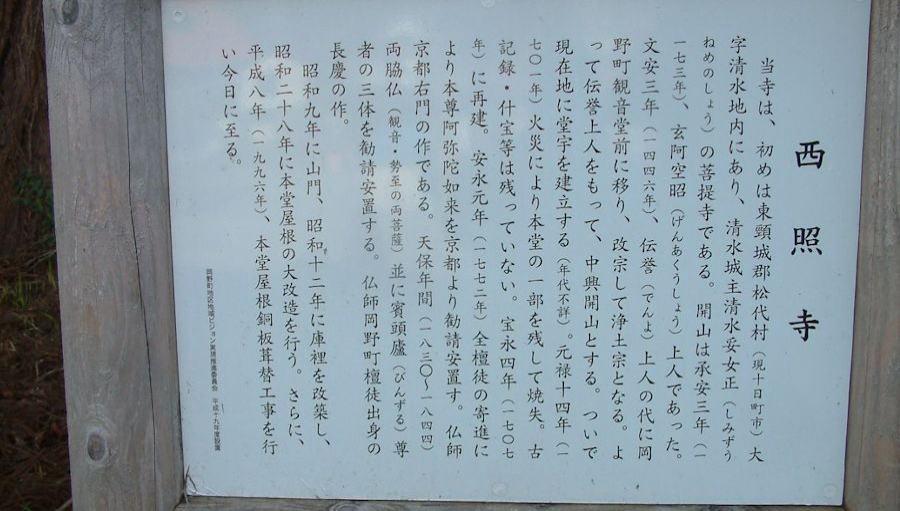 西照寺
当寺は、初めは東頸城郡松代村（現十日町市）大
字清水地内にあり、清水城主清水妥女正（しみずう
ねめのしょう）の菩提寺である。開山は承安三年（一
一七三年）、玄阿空昭（げんあくうしょう）上人であった。
文安三年（一四四六年）、伝誉（でんよ）上人の代に岡
野町観音堂前に移り、改宗して浄土宗となる。よ
って伝誉上人をもって、中興開山とする。ついで
現在地に堂宇を建立する（年代不詳）。元禄十四年（一
七〇一年）火災により本堂の一部を残して焼失。古
記録・什宝等は残っていない。宝永四年（一七〇七
年）に再建。安永元年（一七七二年）全檀徒の寄進に
より本尊阿弥陀如来を京都より勧請安置す。仏師
京都右門の作である。天保年間（一八三〇〜一八四四）
両脇仏（観音・勢至の両菩薩）並に賓頭盧（びんずる）尊
者の三体を勧請安置する。仏師岡野町檀徒出身の
長慶の作。
昭和九年に山門、昭和十二年に庫裡を改築し、
昭和二十八年に本堂屋根の大改造を行う。さらに、
平成八年（一九九六年）、本堂屋根銅板葺替工事を行
い今日に至る。
岡野町地区地域ビジョン実現推進委員会 平成十九年度設置